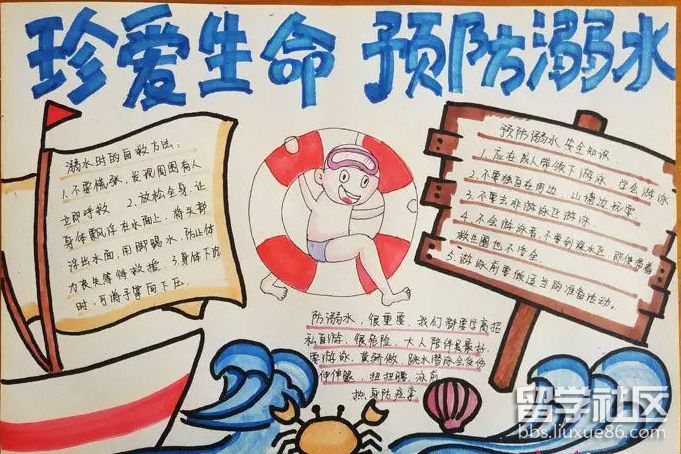 珍爱生命 预防溺水
溺水时的自救方法:
1.不要慌张,发现周围有人
立即呼救 2.放松全身,让
身体飘浮在水面上,将头部
浮出水面,用脚踢水,防止体
力丧失等待救援 3.身体下沉
时,可将手掌向下压。
预防溺水安全知识
1.应在成人带领下游泳 学会游泳
2.不要独自在河边、山塘边玩耍
3.不要去非游泳区游泳
4.不会游泳者,不要到深水区,即使带着
救生圈也不安全
5.游泳前要做适当的准备活动。
防溺水,很重要,我们都要
私自游,很危险,大人陪伴是最好,
要游泳, 跳水潜泳会受伤
伸伸腿,扭扭腰,泳前
热身防痉挛
留学社区
bbs.liuxue86.com